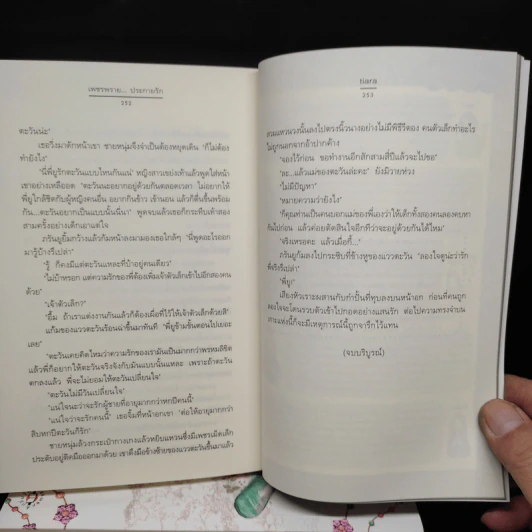 เพชรพราย... ประกายรัก
252
ตะวันน่ะ"
เธอวิ่งมาดักหน้าเขา ชายหนุ่มจึงจำเป็นต้องหยุดเดิน "ก็ไม่ต้อง
ทำยังไง"
"นี่พี่ยูรักตะวันแบบไหนกันแน่" หญิงสาวเขย่งเท้าแล้วพูดใส่หน้า
เขาอย่างเหลืออด "ตะวันน่ะอยากอยู่ด้วยกันตลอดเวลา ไม่อยากให้
พี่ยูใกล้ชิดกับผู้หญิงคนอื่น อยากกินข้าว เข้านอน แล้วก็ตื่นขึ้นพร้อม
กัน...ตะวันอยากเป็นแบบนั้นนี่นา" พูดจบแล้วเธอก็กระทืบเท้าสอง
สามครั้งอย่างเด็กเอาแต่ใจ
ภรัณยูยิ้มกว้างแล้วก้มหน้าลงมามองเธอใกล้ๆ "นี่พูดอะไรออก
มารู้บ้างรึเปล่า"
"รู้ ก็คงมีแต่ตะวันแหละที่บ้าอยู่คนเดียว"
"ไม่บ้าหรอก แต่ความรักของพี่ต้องเพิ่มเจ้าตัวเล็กเข้าไปอีกสองคน
ด้วย"
"เจ้าตัวเล็ก?"
"อื้ม ถ้าเราแต่งงานกันแล้วก็ต้องเผื่อที่ไว้ให้เจ้าตัวเล็กด้วยสิ"
แก้มของแววตะวันร้อนผ่าวขึ้นมาทันที "พี่ยูข้ามขั้นตอนไปเยอะ
เลย"
"ตะวันเคยคิดไหมว่าความรักของเรามันเป็นมากกว่าพรหมลิขิต
แล้วพี่ก็อยากให้ตะวันจริงจังกับมันแบบนั้นแหละ เพราะถ้าตะวัน
ตกลงแล้ว พี่จะไม่ยอมให้ตะวันเปลี่ยนใจ"
"ตะวันไม่มีวันเปลี่ยนใจ"
"แน่ใจนะว่าจะรักผู้ชายที่อายุมากกว่าหกปีคนนี้"
"แน่ใจว่าจะรักคนนี้" เธอจิ้มที่หน้าอกเขา "ต่อให้อายุมากกว่า
สิบหกปีตะวันก็รัก"
ชายหนุ่มล้วงกระเป๋ากางเกงแล้วหยิบแหวนซึ่งมีเพชรเม็ดเล็ก
ประดับอยู่ติดมือออกมาด้วย เขาดึงมือข้างซ้ายของแววตะวันขึ้นมาแล้ว
tiara
253
สวมแหวนวงนั้นลงไปตรงนิ้วนางอย่างไม่มีพิธีรีตอง คนตัวเล็กทำอะไร
ไม่ถูกนอกจากอ้าปากค้าง
"จองไว้ก่อน ขอทำงานอีกสักสามสี่ปีแล้วจะไปขอ"
"ละ...แล้วแม่ของตะวันล่ะคะ" ยังมีวายห่วง
"ไม่มีปัญหา"
"หมายความว่ายังไง"
"ก็คุณท่านเป็นคนบอกแม่ของพี่เองว่าให้เด็กทั้งสองคนลองคบหา
กันไปก่อน แล้วค่อยตัดสินใจอีกทีว่าจะอยู่ด้วยกันได้ไหม"
"จริงเหรอคะ แล้วเมื่อกี้..."
ภรัณยูก้มลงไปกระซิบที่ข้างหูของแววตะวัน "ลองใจดูน่ะว่ารัก
จริงรึเปล่า"
"พี่ยู!"
เสียงหัวเราะผสานกับกำปั้นที่ทุบลงบนหน้าอก ก่อนที่คนถูก
ลองใจจะโดนรวบตัวเข้าไปกอดอย่างแสนรัก ต่อไปความทรงจำบน
เกาะแห่งนี้ก็จะมีเหตุการณ์นี้ถูกจารึกไว้แทน
(จบบริบูรณ์)